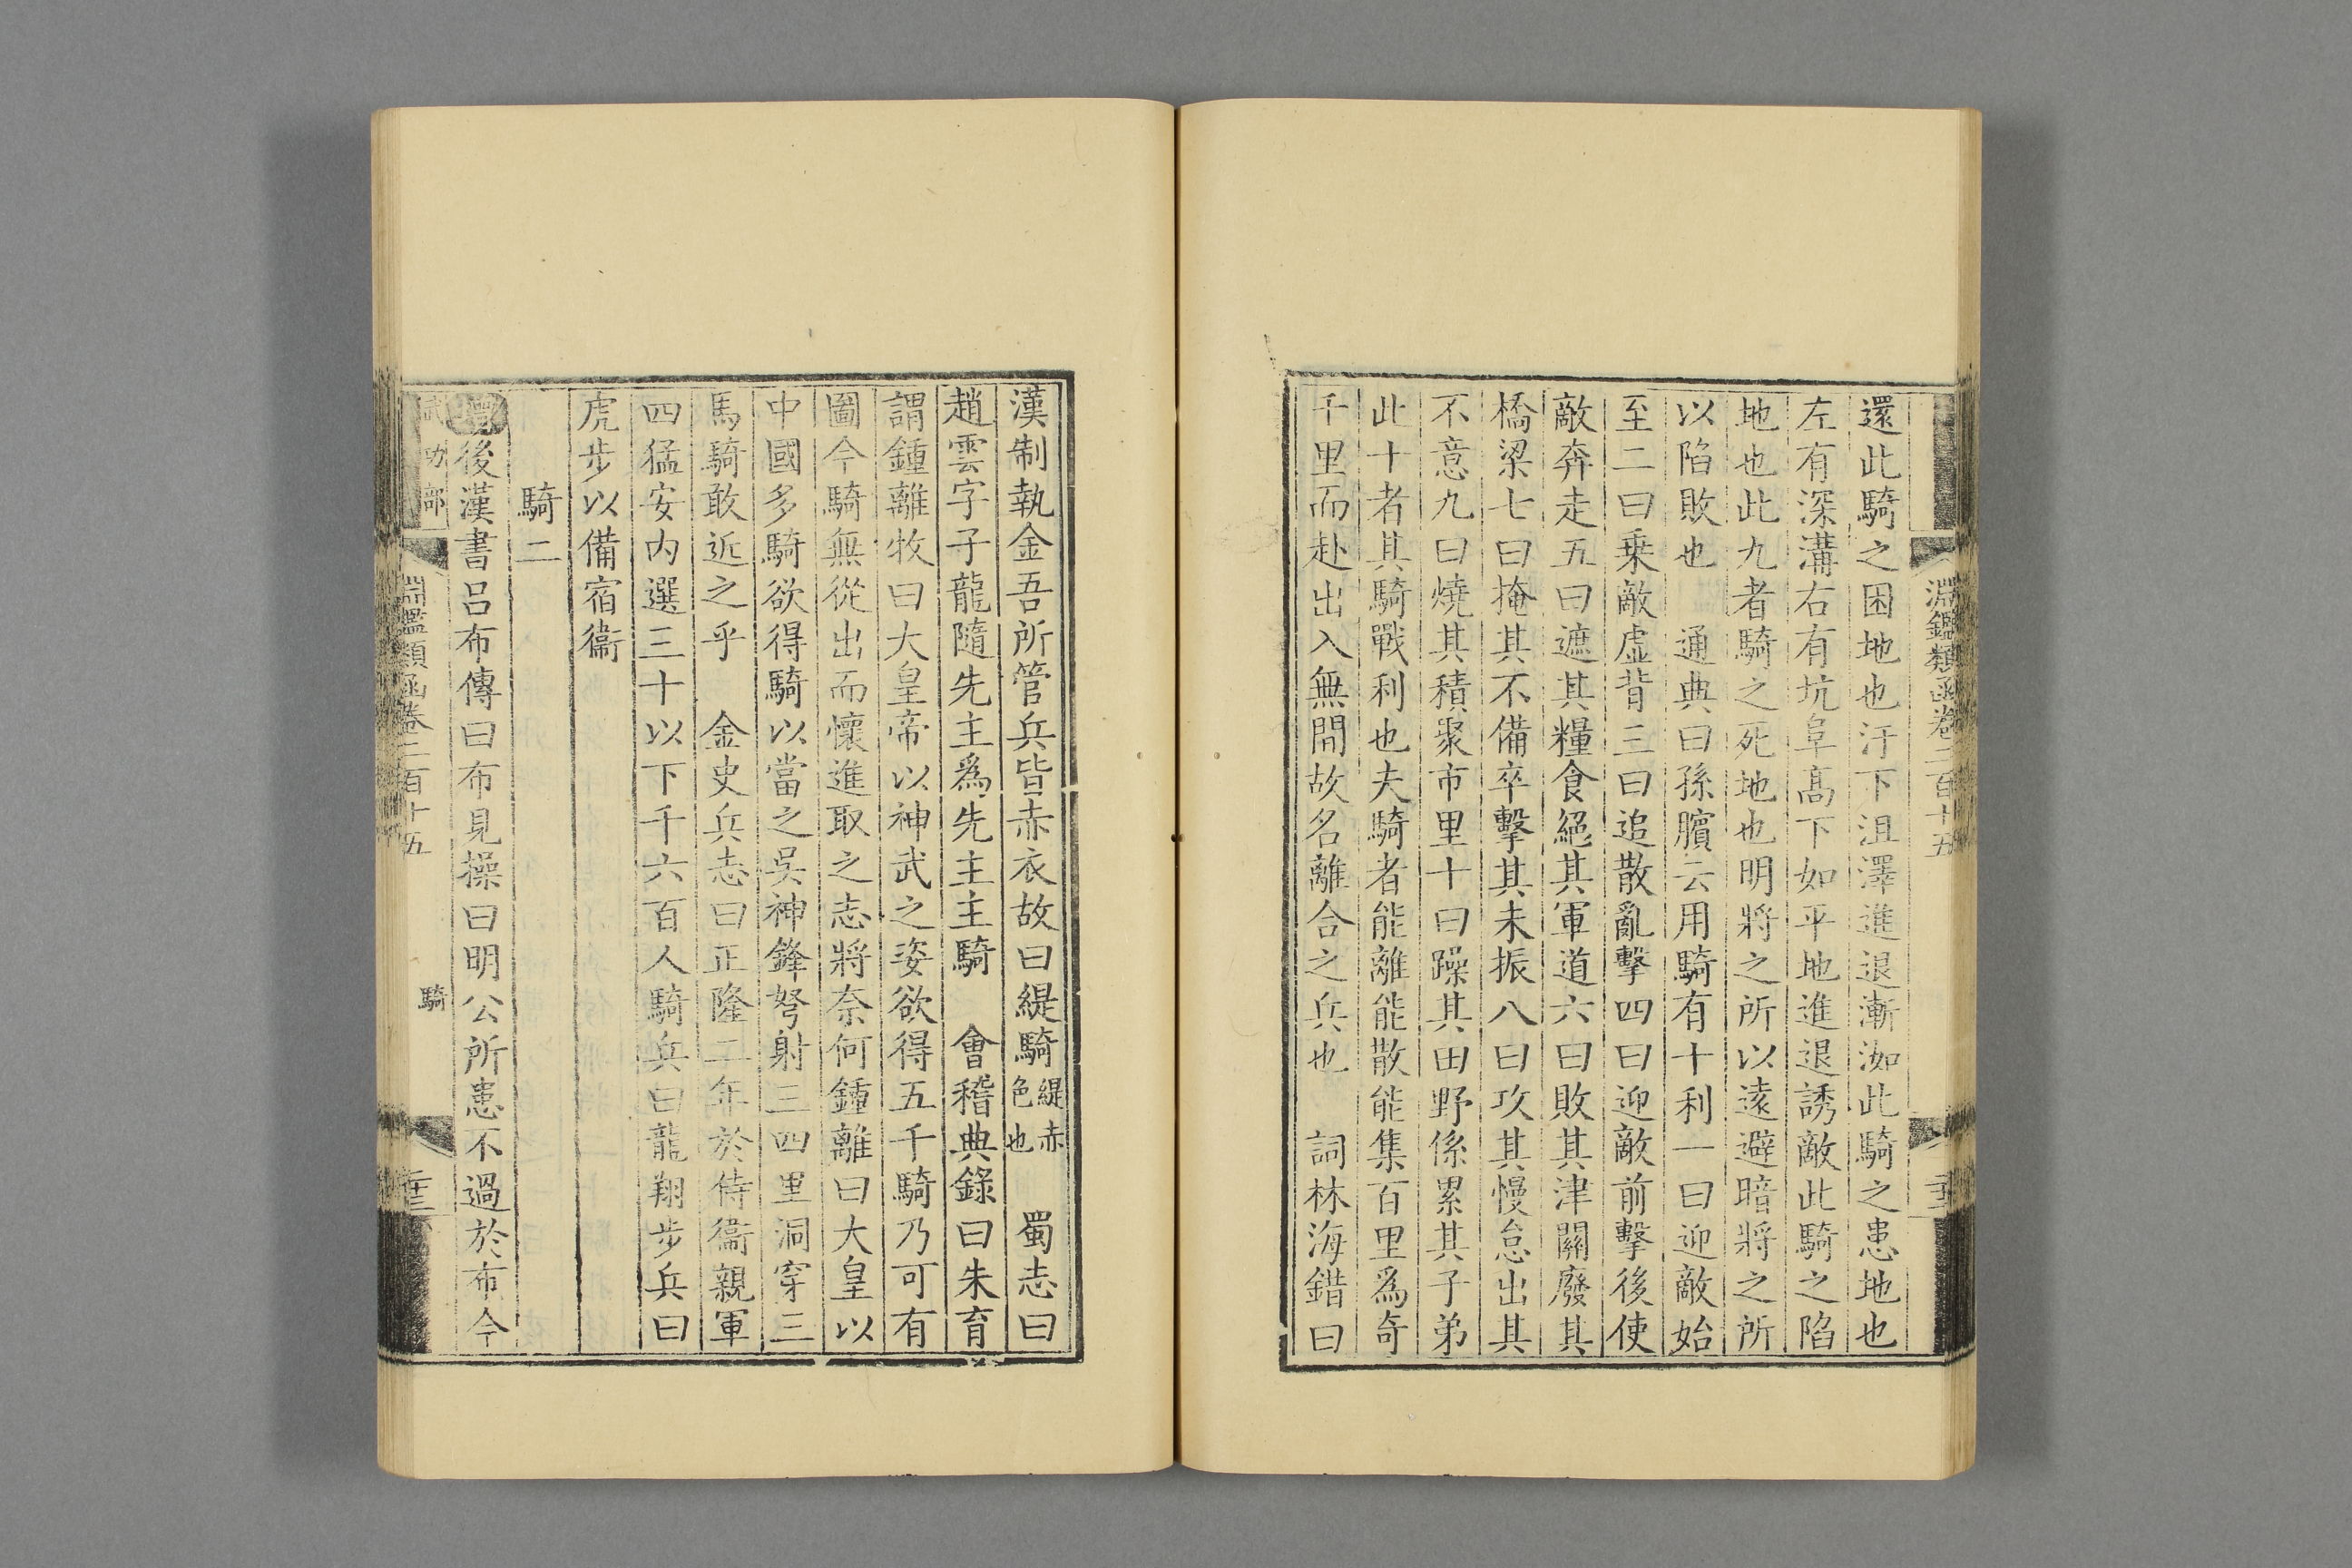 淵鑑類函卷二百十五
還此騎之困地也汙下沮澤進退漸洳此騎之患地也
左有深溝右有坑阜高下如平地進退誘敵此騎之陷
地也此九者騎之死地也明將之所以遠避暗將之所
以陷敗也　通典曰孫臏云用騎有十利一曰迎敵始
至二曰乗敵虛背三曰追散亂擊四曰迎敵前擊後使
敵奔走五曰遮其糧食絕其軍道六曰敗其津關廢其
橋梁七曰掩其不備卒擊其未振八曰攻其慢怠出其
不意九曰燒其積聚市里十曰躁其田野係累其子弟
此十者其騎戰利也夫騎者能離能散能集百里爲奇
千里而赴出入無間故名離合之兵也　詞林海錯曰
漢制執金吾所管兵皆赤衣故曰緹騎緹赤色也　蜀志曰
趙雲字子龍隨先主爲先主主騎　會稽典錄曰朱育
謂鍾離牧曰大皇帝以神武之姿欲得五千騎乃可有
圖今騎無從出而懷進取之志將奈何鍾離曰大皇以
中國多騎欲得騎以當之吳神鋒弩射三四里洞穿三
馬騎敢近之乎　金史兵志曰正隆二年於侍衞親軍
四猛安内選三十以下千六百人騎兵曰龍翔步兵曰
虎步以備宿衞
騎二
後漢書呂布傳曰布見操曰明公所患不過於布今
武功部
淵鑑類函卷二百十五
騎